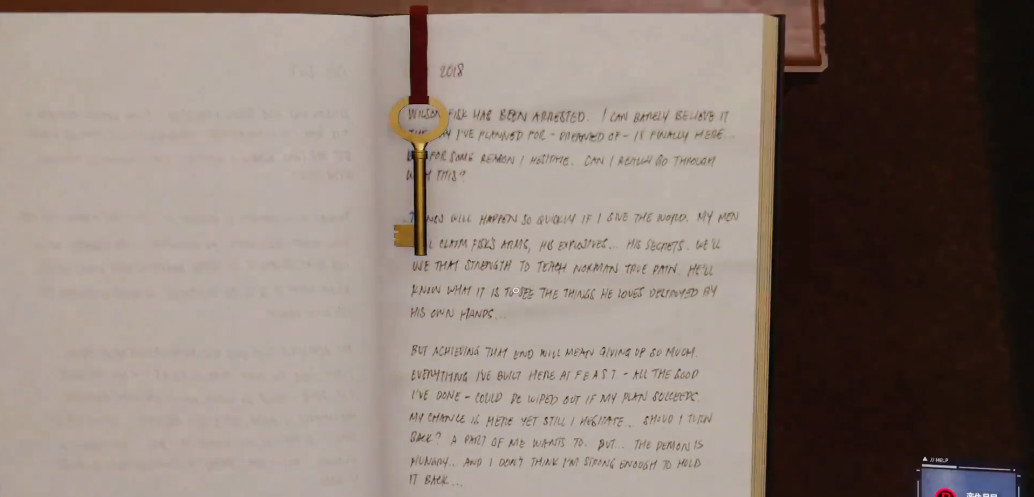 2018
WILSON FISK HAS BEEN ARRESTED. I CAN BARELY BELIEVE IT
I'VE PLANNED FOR - DREAMED OF - IS FINALLY HERE...
FOR SOME REASON I HESITATE. CAN I REALLY GO THROUGH
THIS?
WILL HAPPEN SO QUICKLY IF I GIVE THE WORD. MY MEN
CLAIM FISK'S ARMS, HIS EXPLOSIVES... HIS SECRETS. WE'LL
USE THAT STRENGTH TO TEACH NORMAN TRUE PAIN. HE'LL
KNOW WHAT IT IS TO SEE THE THINGS HE LOVES DESTROYED BY
HIS OWN HANDS...
BUT ACHIEVING THAT END WILL MEAN GIVING UP SO MUCH.
EVERYTHING I'VE BUILT HERE AT F.E.A.S.T - ALL THE GOOD
I'VE DONE - COULD BE WIPED OUT IF MY PLAN SUCCEEDS
MY CHANCE IS HERE YET STILL I HESITATE. SHOULD I TURN
BACK? A PART OF ME WANTS TO. BUT... THE DEMON IS
HUNGRY.. AND I DON'T THINK I'M STRONG ENOUGH TO HOLD
IT BACK...
// HELP